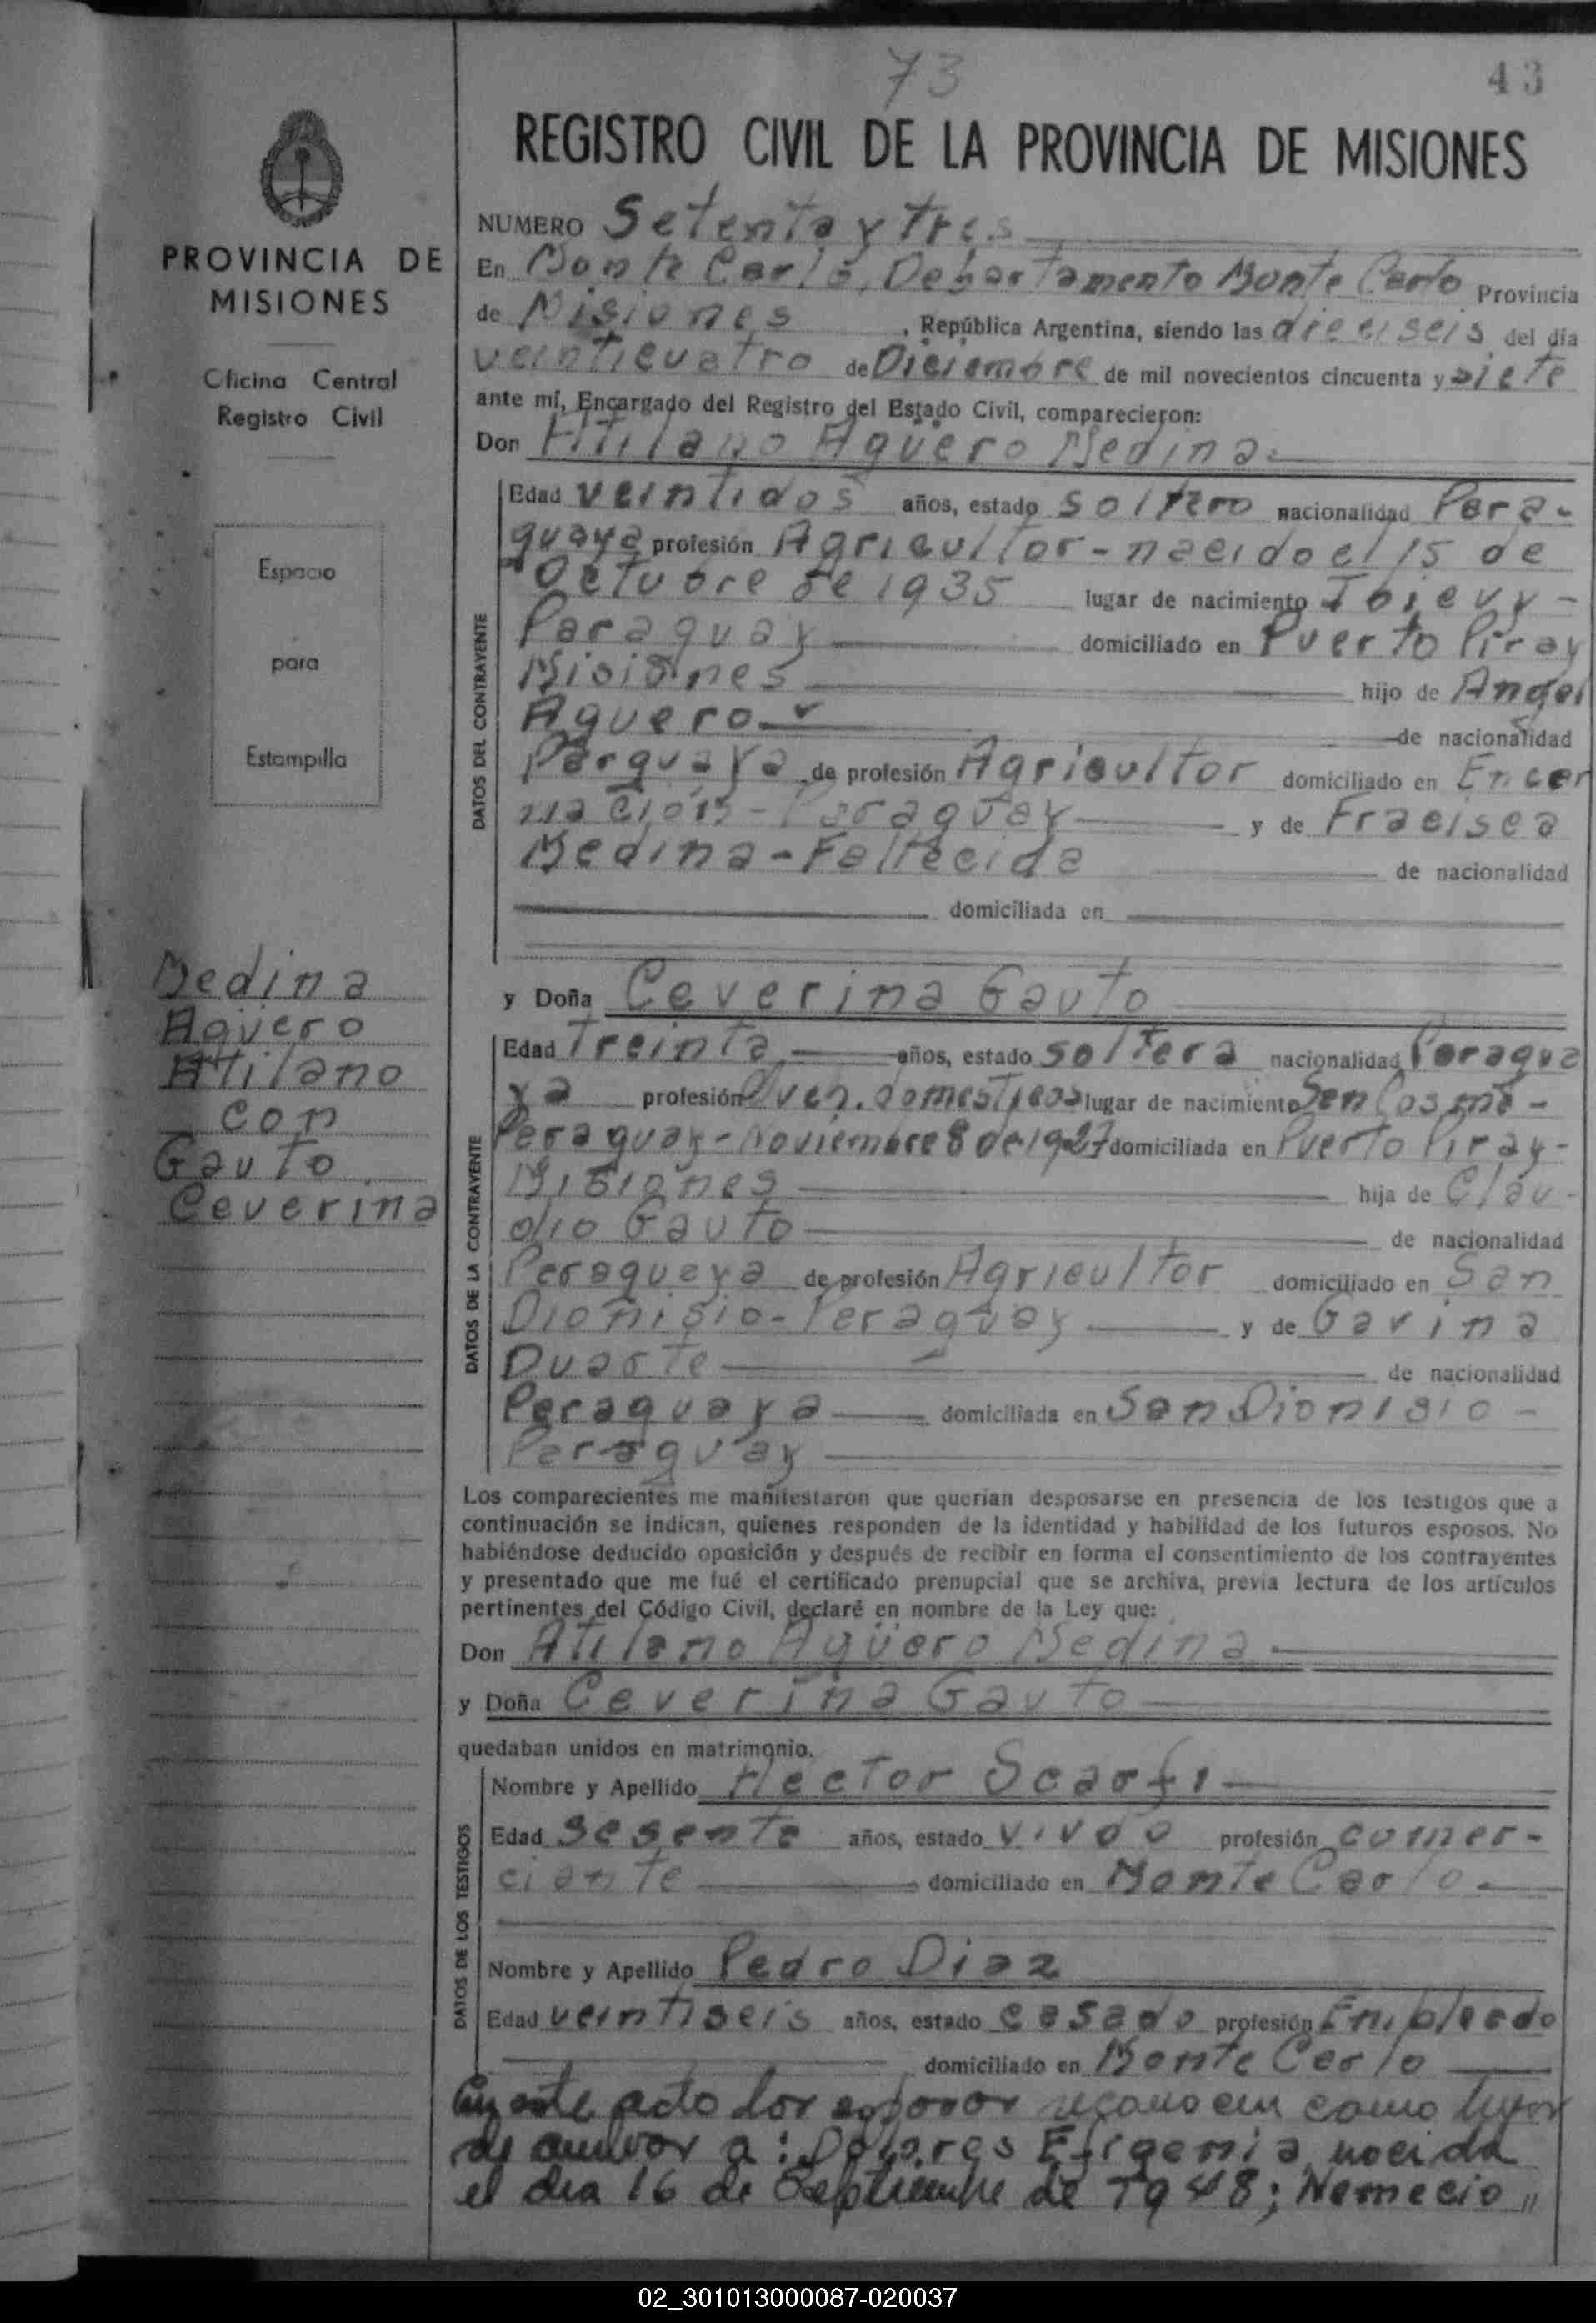 73
43
REGISTRO CIVIL DE LA PROVINCIA DE MISIONES
PROVINCIA DE
MISIONES
Oficina Central
Registro Civil
Espacio
para
Estampilla
Medina
Agüero
Atilano
con
Gauto
Ceverina
NUMERO Setenta y tres
En Monte Carlo, Departamento Monte Carlo Provincia
de Misiones, República Argentina, siendo las dieciseis del día
veinticuatro de Diciembre de mil novecientos cincuenta y siete
ante mí, Encargado del Registro del Estado Civil, comparecieron:
Don Atilano Agüero Medina
DATOS DEL CONTRAYENTE
Edad veintidos años, estado soltero nacionalidad Para-
guaya profesión Agricultor - nacido el 15 de
Octubre de 1935 lugar de nacimiento
Paraguay domiciliado en Puerto Piray
Misiones hijo de Angel
Aguero de nacionalidad
Parguaya de profesión Agricultor domiciliado en Encar
nación - Paraguay y de Fracisca
Medina - Fallecida de nacionalidad
domiciliada en
y Doña Ceverina Gauto
DATOS DE LA CONTRAYENTE
Edad Treinta años, estado soltera nacionalidad Paragua
ya profesión Queh. domesticos lugar de nacimiento San Cosme -
Paraguay - Noviembre 8 de 1927 domiciliada en Puerto Piray -
Misiones hija de Clau-
dio Gauto de nacionalidad
Paraguaya de profesión Agricultor domiciliado en San
Dionisio - Paraguay y de Gavina
Duarte de nacionalidad
Paraguaya domiciliada en San Dionisio -
Paraguay
Los comparecientes me manifestaron que querían desposarse en presencia de los testigos que a
continuación se indican, quienes responden de la identidad y habilidad de los futuros esposos. No
habiéndose deducido oposición y después de recibir en forma el consentimiento de los contrayentes
y presentado que me fué el certificado prenupcial que se archiva, previa lectura de los artículos
pertinentes del Código Civil, declaré en nombre de la Ley que:
Don Atilano Agüero Medina
y Doña Ceverina Gauto
quedaban unidos en matrimonio.
DATOS DE LOS TESTIGOS
Nombre y Apellido Hector Scarfi
Edad sesenta años, estado viudo profesión comer-
ciante domiciliado en Monte Carlo
Nombre y Apellido Pedro Diaz
Edad veintiseis años, estado casado profesión Empleado
domiciliado en Monte Carlo
En este acto los esposos reconocen como hijos
de ambos a: Dolores Efigenia nacida
el dia 16 de Septiembre de 1948; Nemecio "
02_301013000087-020037